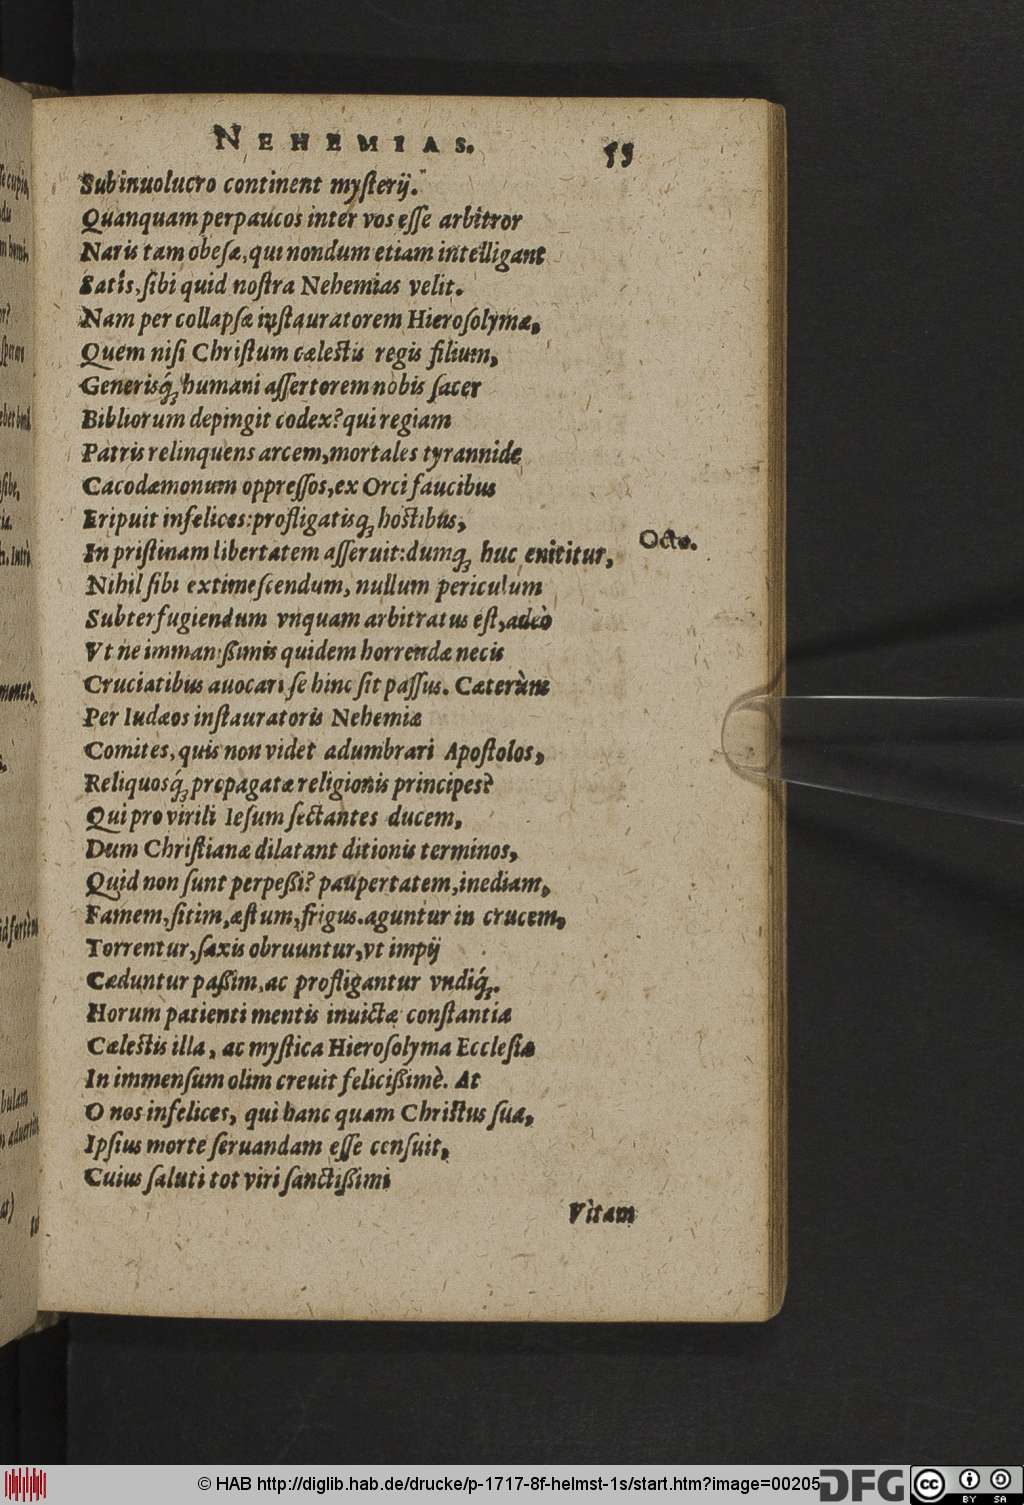 NEHEMIAS. 55
Sub inuolucro continent myſterij.
Quanquam perpaucos inter vos eſſe arbitror
Naris tam obeſæ, qui nondum etiam intelligant
Satis, ſibi quid noſtra Nehemias velit.
Nam per collapſæ inſtauratorem Hieroſolymæ,
Quem niſi Chriſtum cæleſtis regis filium,
Generisq́ꝫ humani aſſertorem nobis ſacer
Bibliorum depingit codex? qui regiam
Patris relinquens arcem, mortales tyrannide
Cacodæmonum oppreſſos, ex Orci faucibus
Eripuit infelices: profligatisqꝫ hoſtibus,
In priſtinam libertatem aſſeruit: dumqꝫ huc enititur,
Octo.
Nihil ſibi extimeſcendum, nullum periculum
Subterfugiendum vnquam arbitratus eſt, adeò
Vt ne immanißimis quidem horrendæ necis
Cruciatibus auocari ſe hinc ſit paſſus. Cæterùm
Per Iudæos inſtauratoris Nehemiæ
Comites, quis non videt adumbrari Apoſtolos,
Reliquosq́ꝫ propagatæ religionis principes?
Qui pro virili Ieſum ſectantes ducem,
Dum Chriſtianæ dilatant ditionis terminos,
Quid non ſunt perpeßi? paupertatem, inediam,
Famem, ſitim, æſtum, frigus. aguntur in crucem,
Torrentur, ſaxis obruuntur, vt impij
Cæduntur paßim, ac profligantur vndiq́ꝫ.
Horum patienti mentis inuictæ conſtantia
Cæleſtis illa, ac myſtica Hieroſolyma Eccleſia
In immenſum olim creuit felicißimè. At
O nos infelices, qui hanc quam Chriſtus ſua,
Ipſius morte ſeruandam eſſe cenſuit,
Cuius ſaluti tot viri ſanctißimi
Vitam
© HAB http://diglib.hab.de/drucke/p-1717-8f-helmst-1s/start.htm?image=00205
DFG
cc BY SA